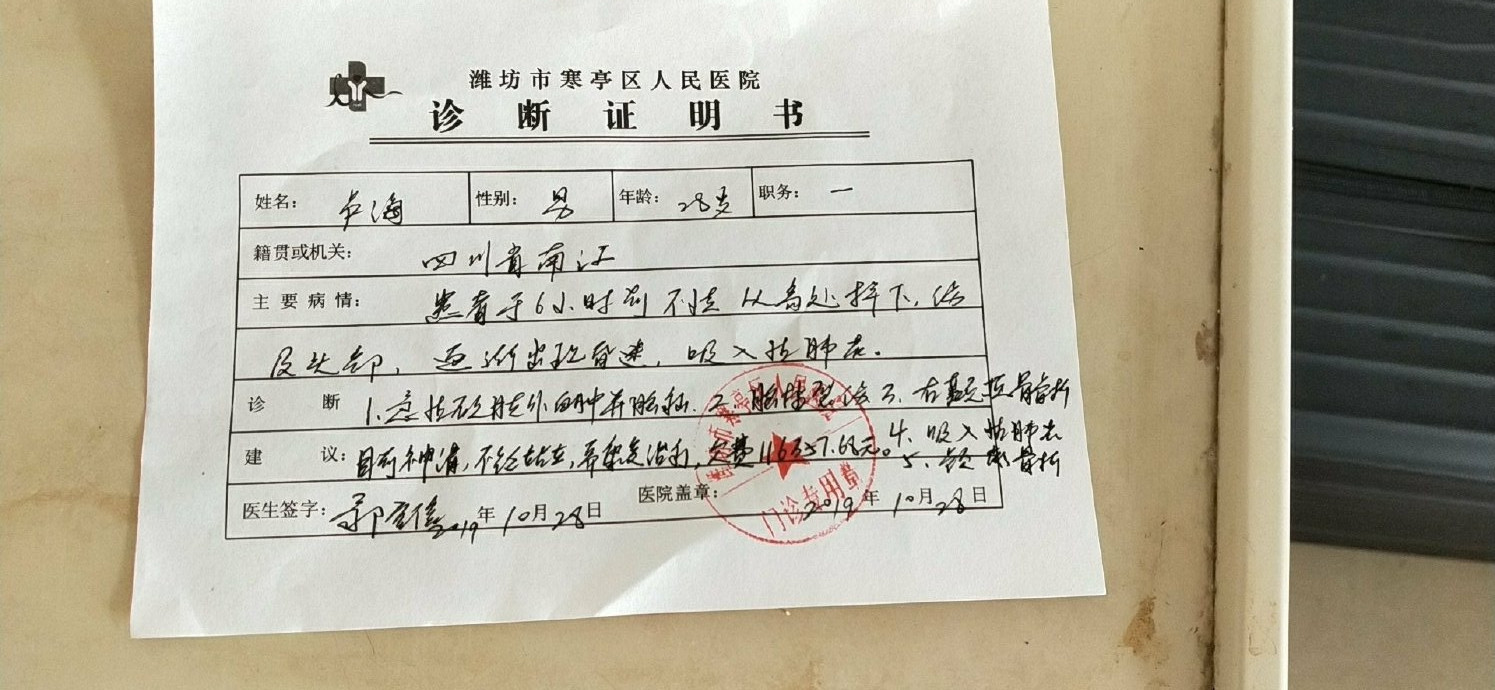 潍坊市寒亭区人民医院
诊断证明书
姓名： 卢海 性别： 男 年龄： 28岁 职务： 一
籍贯或机关： 四川省南江
主要病情： 患者于6小时前不慎从高处摔下，伤
及头部，逐渐出现昏迷，吸入性肺炎。
诊断 1.急性硬膜外血肿并脑疝 2. 脑挫裂伤 3. 右颞顶骨骨折
4. 吸入性肺炎
建议： 目前神清，不能站立，需继续治疗，欠费
5. 骨折
医生签字： 2019年10月28日 医院盖章： 2019年10月28日
门诊专用章